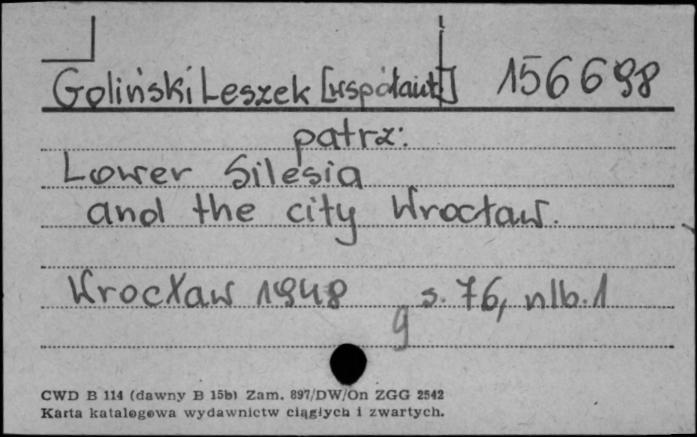 Goliński Leszek [współaut] 156698
patrz:
Lower Silesia
and the city Wrocław.
Wrocław 1948 s. 76, nlb. 1
g
CWD B 114 (dawny B 15b) Zam. 897/DW/On ZGG 2542
Karta katalogowa wydawnictw ciągłych i zwartych.